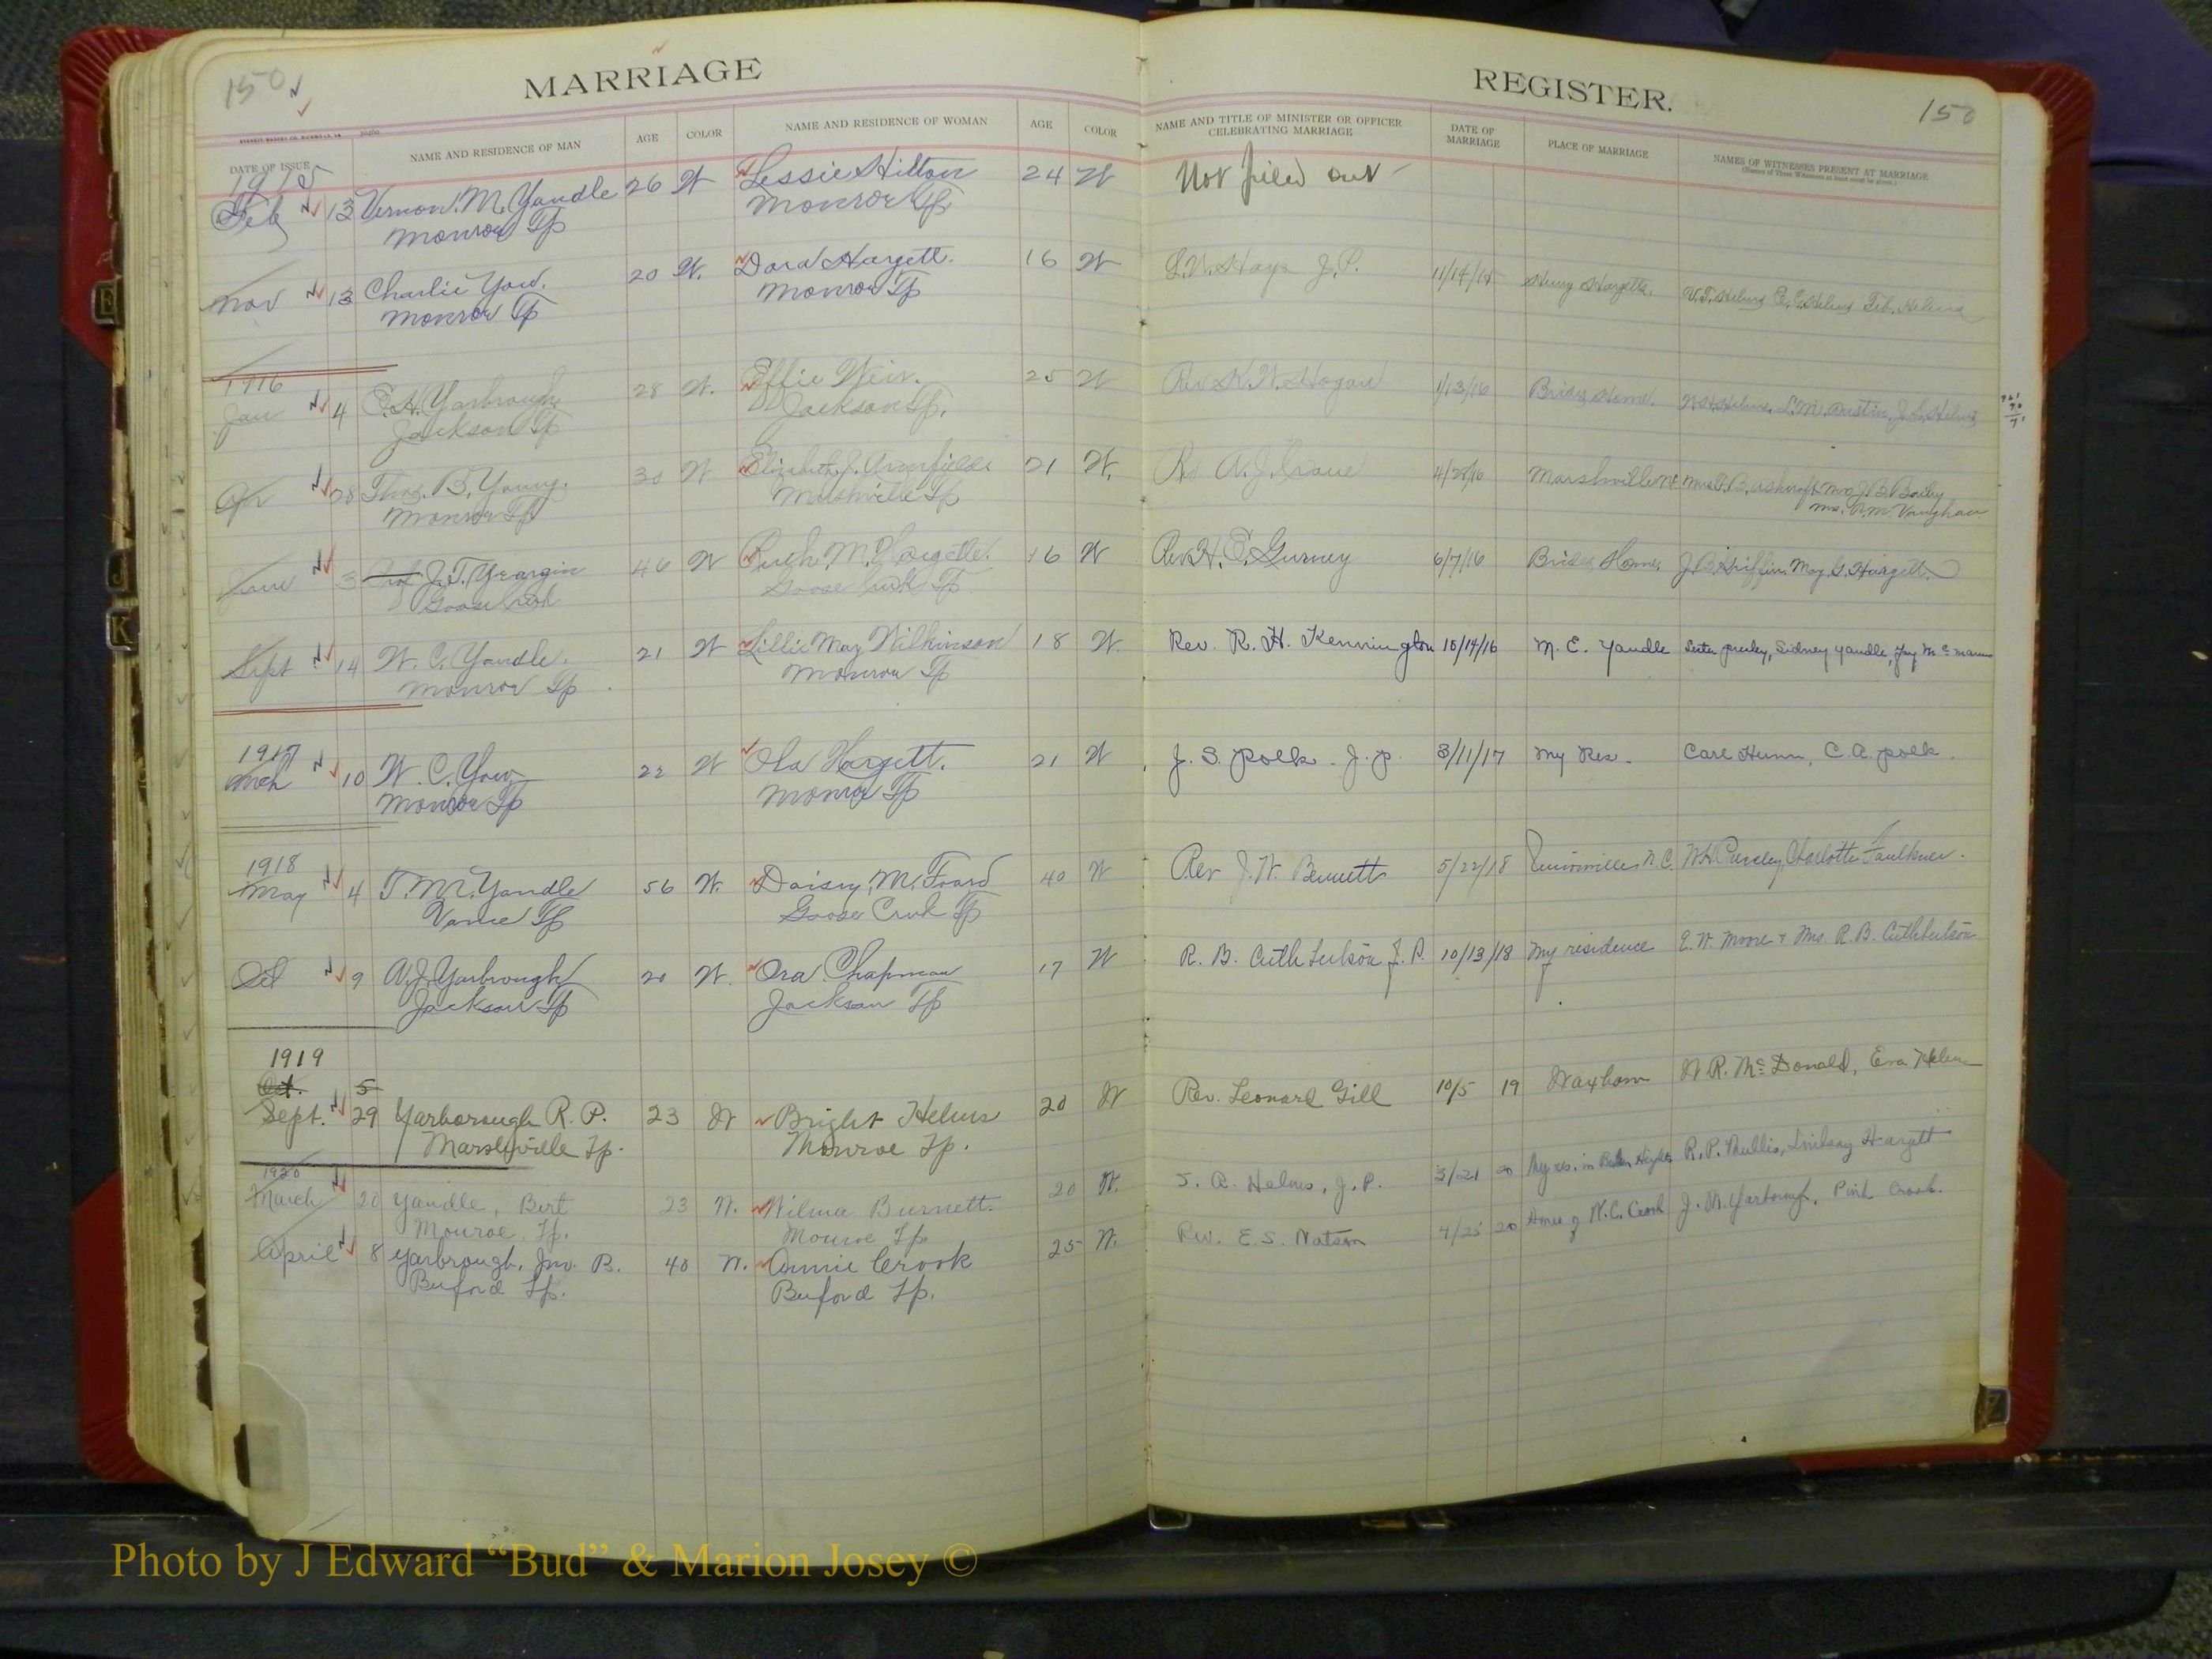 150
MARRIAGE REGISTER.
150
DATE OF ISSUE NAME AND RESIDENCE OF MAN AGE COLOR NAME AND RESIDENCE OF WOMAN AGE COLOR NAME AND TITLE OF MINISTER OR OFFICER CELEBRATING MARRIAGE DATE OF MARRIAGE PLACE OF MARRIAGE NAMES OF WITNESSES PRESENT AT MARRIAGE
(Names of Three Witnesses at least must be given.)
1915
Feb 13 Vernon M. Yandle 26 W Lessie Hilton 24 W Not filled out
Monroe Tp Monroe Tp
Nov 13 Charlie Yow. 20 W. Dora Hargett. 16 W J.P. 11/14/15 Henry Hargetts. V.T. Helms Helms Helms
Monroe Tp Monroe Tp
1916
Jan 4 C.H. Yarbrough 28 W. Effie Weir. 25 W Rev K.W. Hogan 1/13/16 Brides Home. Helms, L.M. Austin, J.L. Helms
Jackson Tp Jackson Tp.
Apr 28 Thos. B. Young. 30 W Elizabeth J. Armfield 21 W. Rev A.J. Crane 4/28/16 Marshville NC Mrs. P.B. Ashcraft Mrs J.B. Bailey
Monroe Tp Marshville Tp Mrs. Vaughan
June 3 Prof J.T. Yeargin 46 W Ruth M. Hargette. 16 W Rev H.C. Gurney 6/7/16 Brides Home. J.B. Griffin. May G. Hargett.
Goose Creek Goose Creek Tp
Sept 14 W. C. Yandle. 21 W Lillie May Wilkinson 18 W. Rev. R. H. Kennington 10/14/16 M. E. Yandle Lester presley, Sidney yandle, Jay
Monroe Tp Monroe Tp
1917
Mch 10 W. C. Yow 22 W Ola Hargett. 21 W J. S. Polk J. P. 3/11/17 My Res. Carl Hunn, C. A. Polk.
Monroe Tp Monroe Tp
1918
May 4 T. M. Yandle 56 W. Daisy M. Foard 40 W Rev J. W. Bennett 5/22/18 Unionville N.C. W.H. Pressley, Charlotte Faulkner.
Vance Tp Goose Creek Tp
Oct 9 A.J. Yarbrough 20 W. Ora Chapman 17 W R. B. Cuthbertson J. P. 10/13/18 My residence E. W. Moore & Mrs. R. B. Cuthbertson
Jackson Tp Jackson Tp
1919
Oct. 5
Sept. 29 Yarborough R. P. 23 W Bright Helms 20 W Rev. Leonard Gill 10/5 19 Waxhaw W. R. McDonald, Eva Helms
Marshville Tp. Monroe Tp.
1920
March 20 Yandle, Bert 23 W. Wilma Burnett. 20 W. J. A. Helms, J. P. 3/21 20 My res. in Heights R. P. Mullis, Lindsay Hargett
Monroe Tp. Monroe Tp
April 8 Yarbrough, Jno. B. 40 W. Annie Crook 25 W. Rev. E. S. Watson 4/25 20 Home of W.C. Crook J. M. Yarborough, Pink Crook.
Buford Tp. Buford Tp.
E
J
K
Z
Photo by J Edward “Bud” & Marion Josey ©